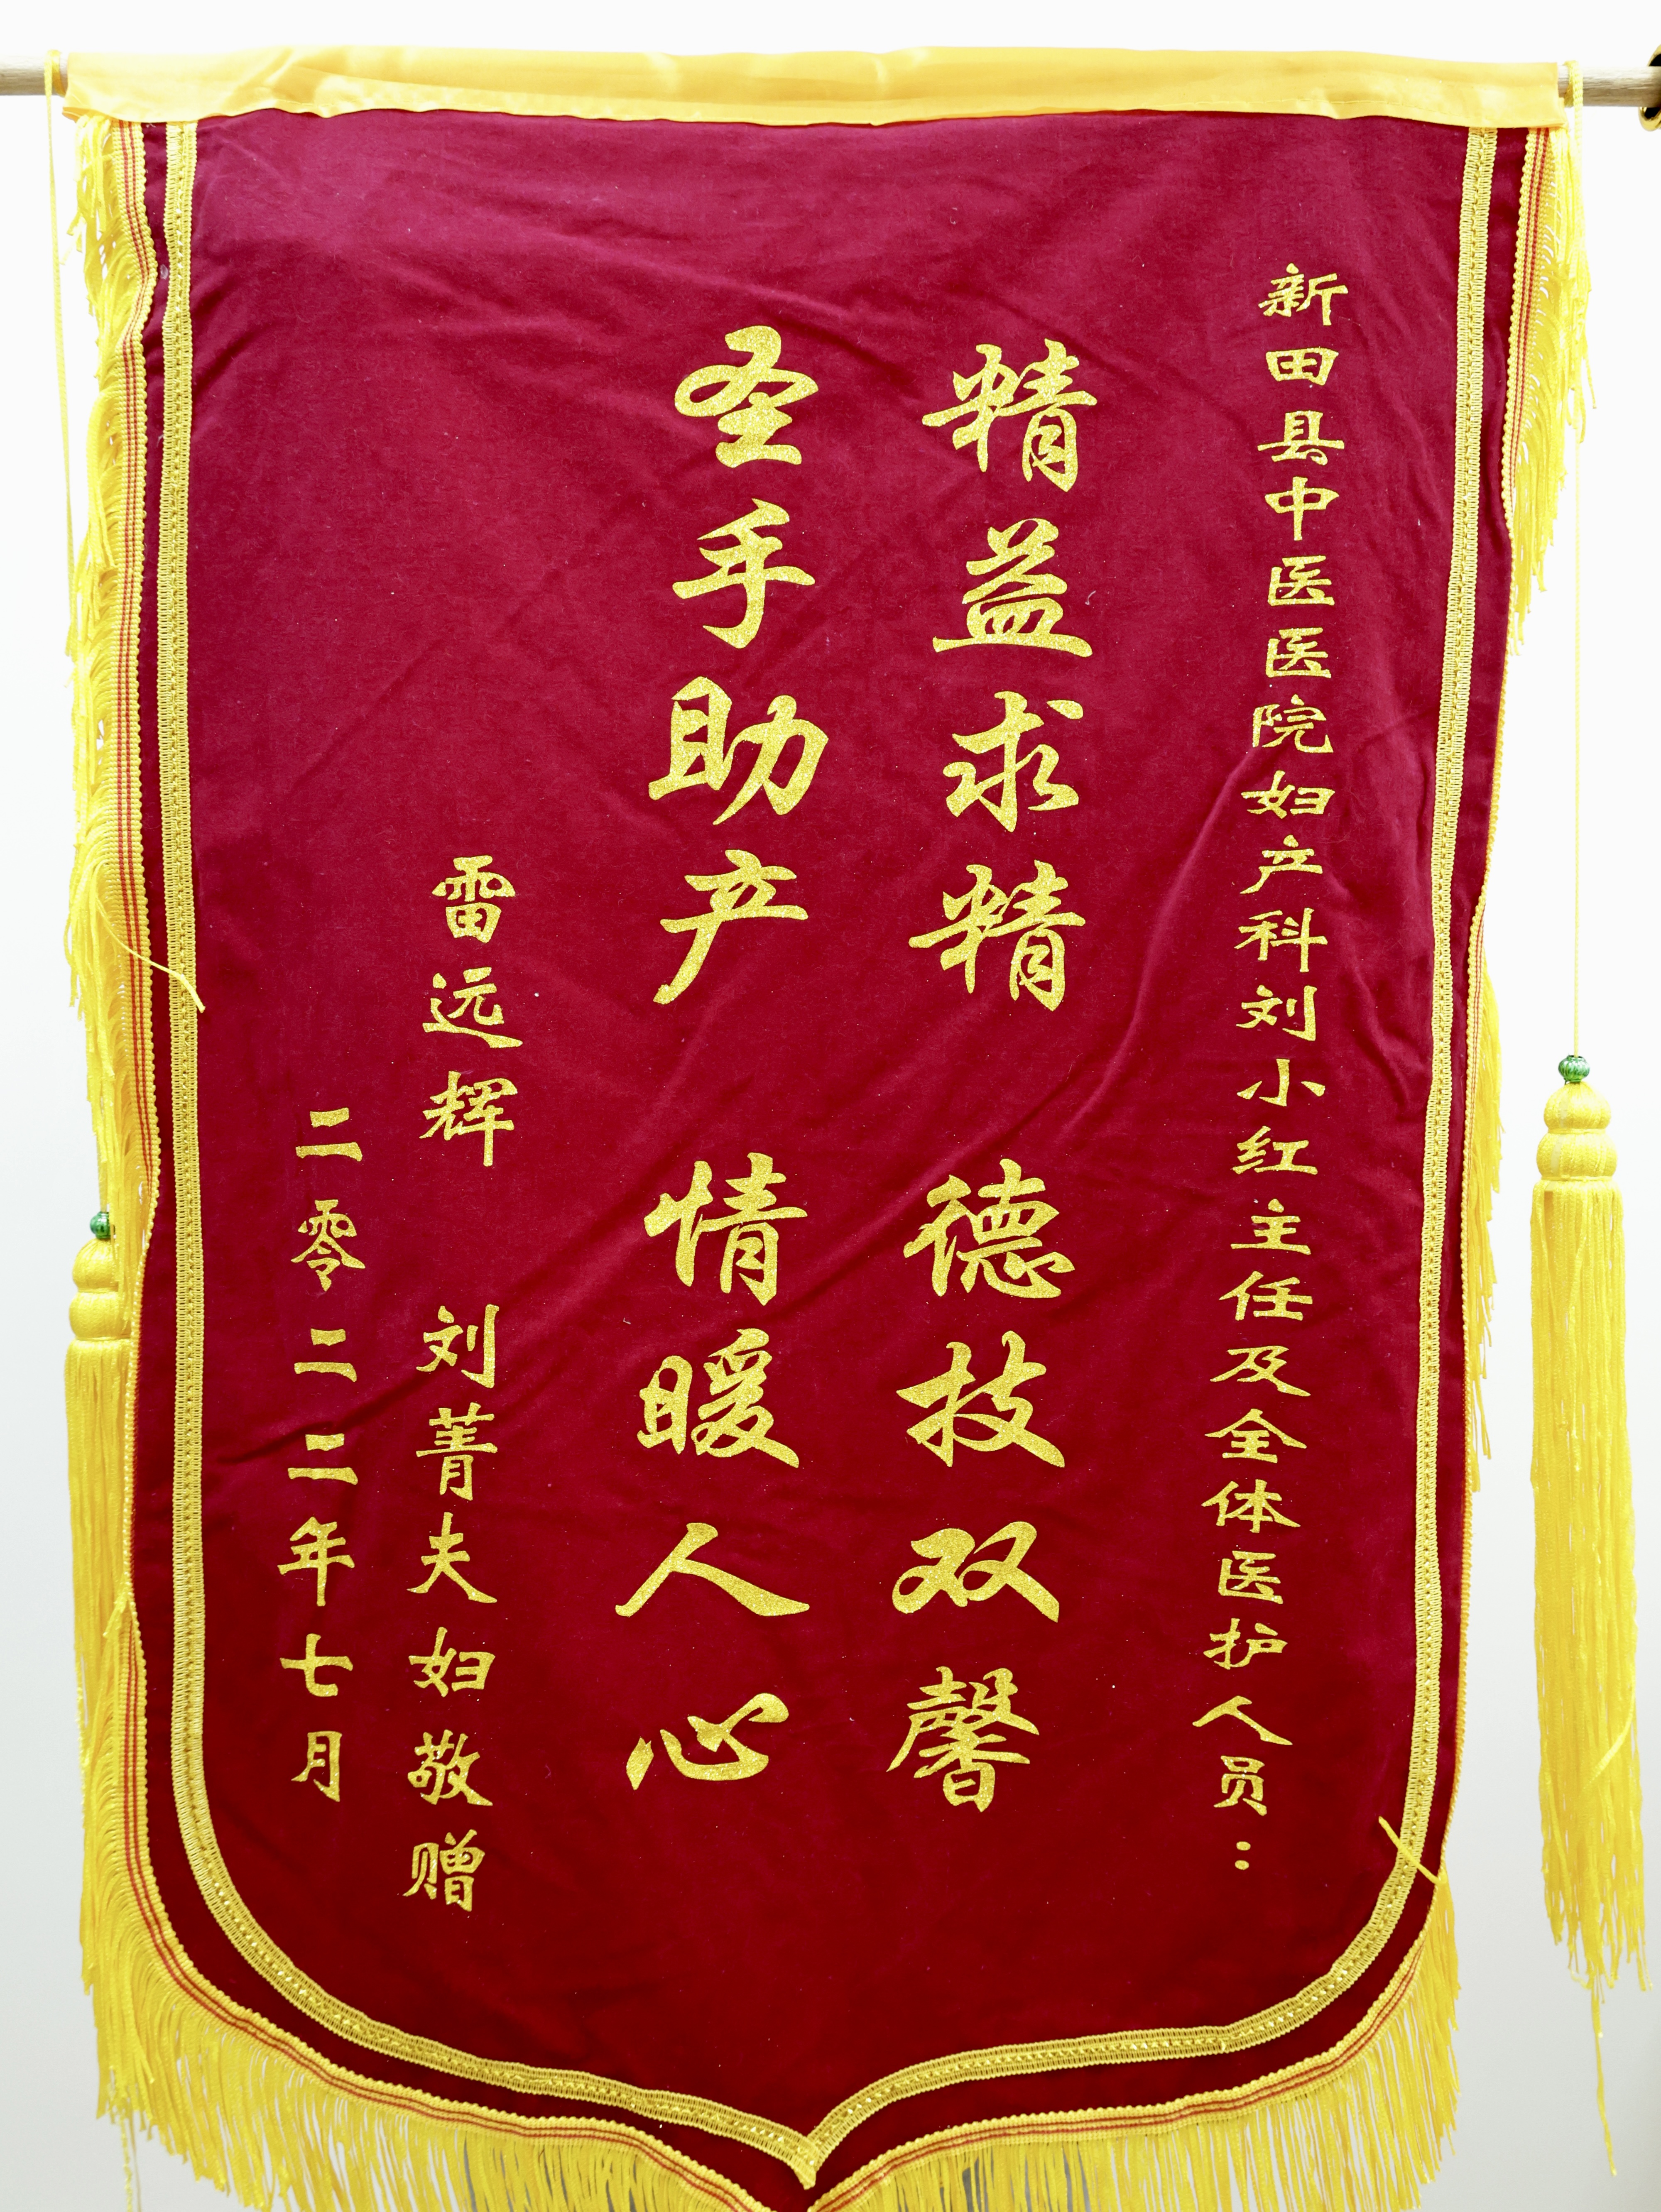 新田县中医医院妇产科刘小红主任及全体医护人员：
精益求精 德技双馨
圣手助产 情暖人心
雷远辉 刘菁夫妇敬赠
二零二二年七月